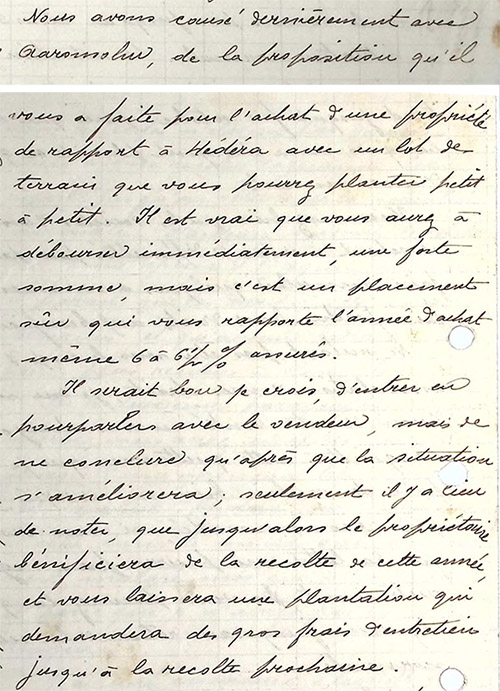 Nous avons causé dernièrement avec
Aaronsohn, de la proposition qu'il
vous a faite pour l'achat d'une propriété
de rapport à Hédéra avec un lot de
terrain que vous pourrez planter petit
à petit. Il est vrai que vous aurez à
débourser immédiatement, une forte
somme, mais c'est un placement
sûr qui vous rapporte l'année d'achat
même 6 à 6 1/2 % assurés.
Il serait bon je crois, d'entrer en
pourparlers avec le vendeur, mais de
ne conclure qu'après que la situation
s'améliorera; seulement il y a lieu
de noter, que jusqu'alors le propriétaire
bénificiera de la recolte de cette année,
et vous laissera une plantation qui
demandera des gros frais d'entretien
jusqu'à la recolte prochaine.